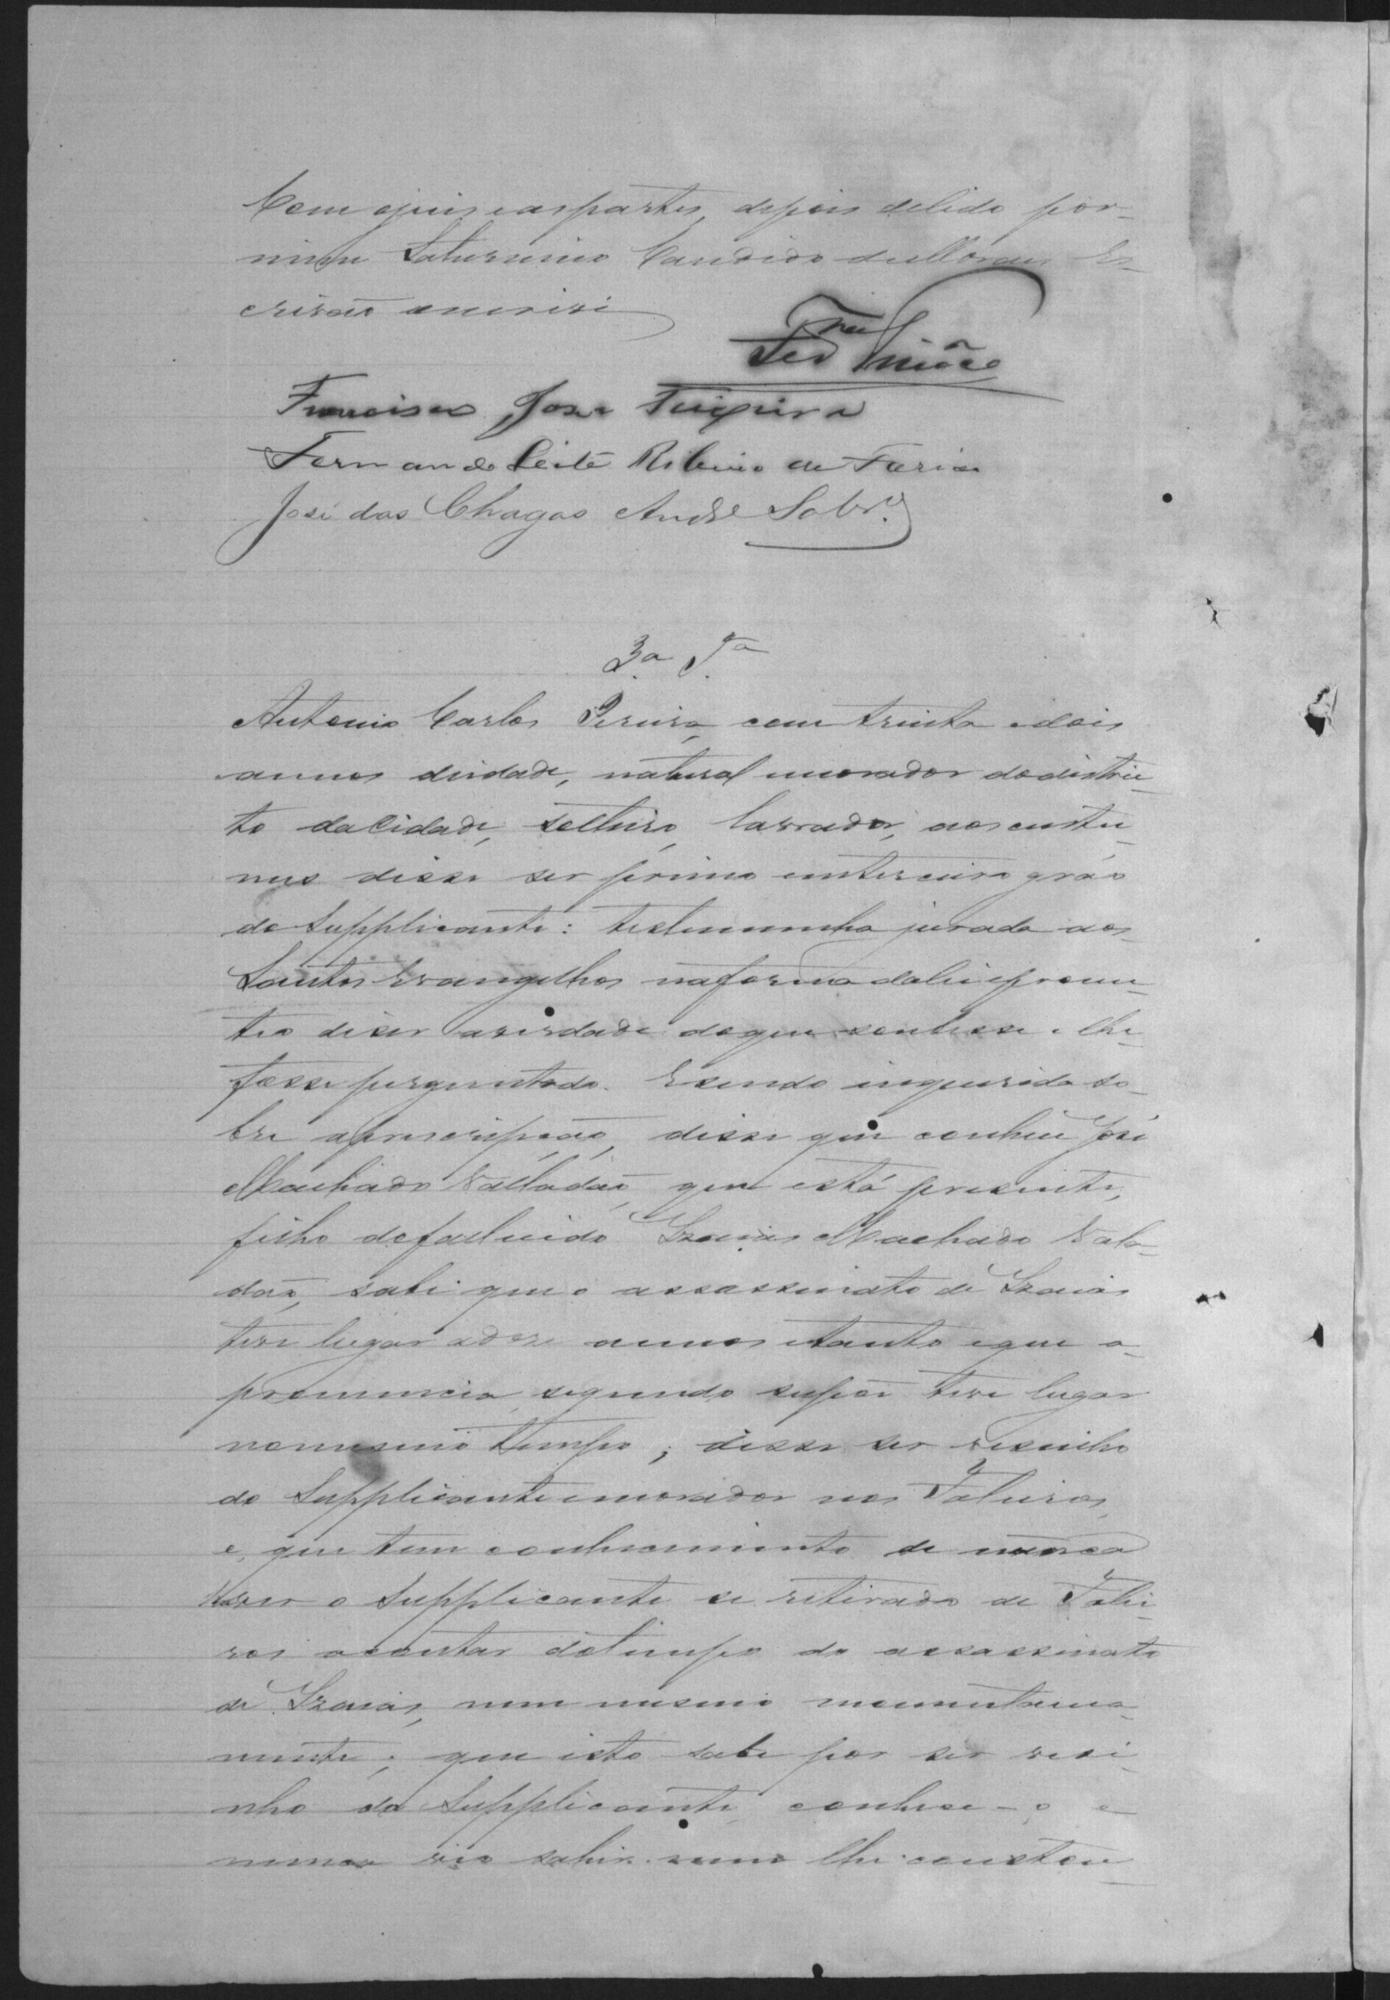 Com o juiz e as partes, depois de lido por
mim Saturnino Candido de Moraes Es-
crivão o escrivi
Francisco Jose Teixeira
Fernando Leite Ribeiro de Faria
José das Chagas Andrе Sobr.º
3.a T.a
Antonio Carlos Pereira, com trinta e dois
annos de idade, natural e morador do distric-
to da Cidade, solteiro, lavrador, aos custu-
mes disse ser primo em terceiro gráo
do Supplicante: testemunha jurada aos
Santos Evangelhos na forma da lei e prome-
teo diser a verdade do que soubesse e lhe
fosse perguntado. E sendo inquerida so-
bre a prescripção, disse que conheceu José
Machado Valladão, que está presente,
filho do fallecido Izaias Machado Vala-
dão, sabe que o assassinato de Izaias
teve lugar a doze annos e tanto e que a
pronuncia segundo supõe teve lugar
no mesmo tempo; disse ser vesinho
do Supplicante e morador nos Taboleiros
e, que tem conhecimento de nunca
haver o Supplicante se retirado de Taboi-
ros a contar do tempo do assassinato
de Izaias, nem mesmo momentanea-
mente; que isto sabe por ser vesi-
nho do Supplicante, conhece-o e
nunca vio sahir nem lhe constou